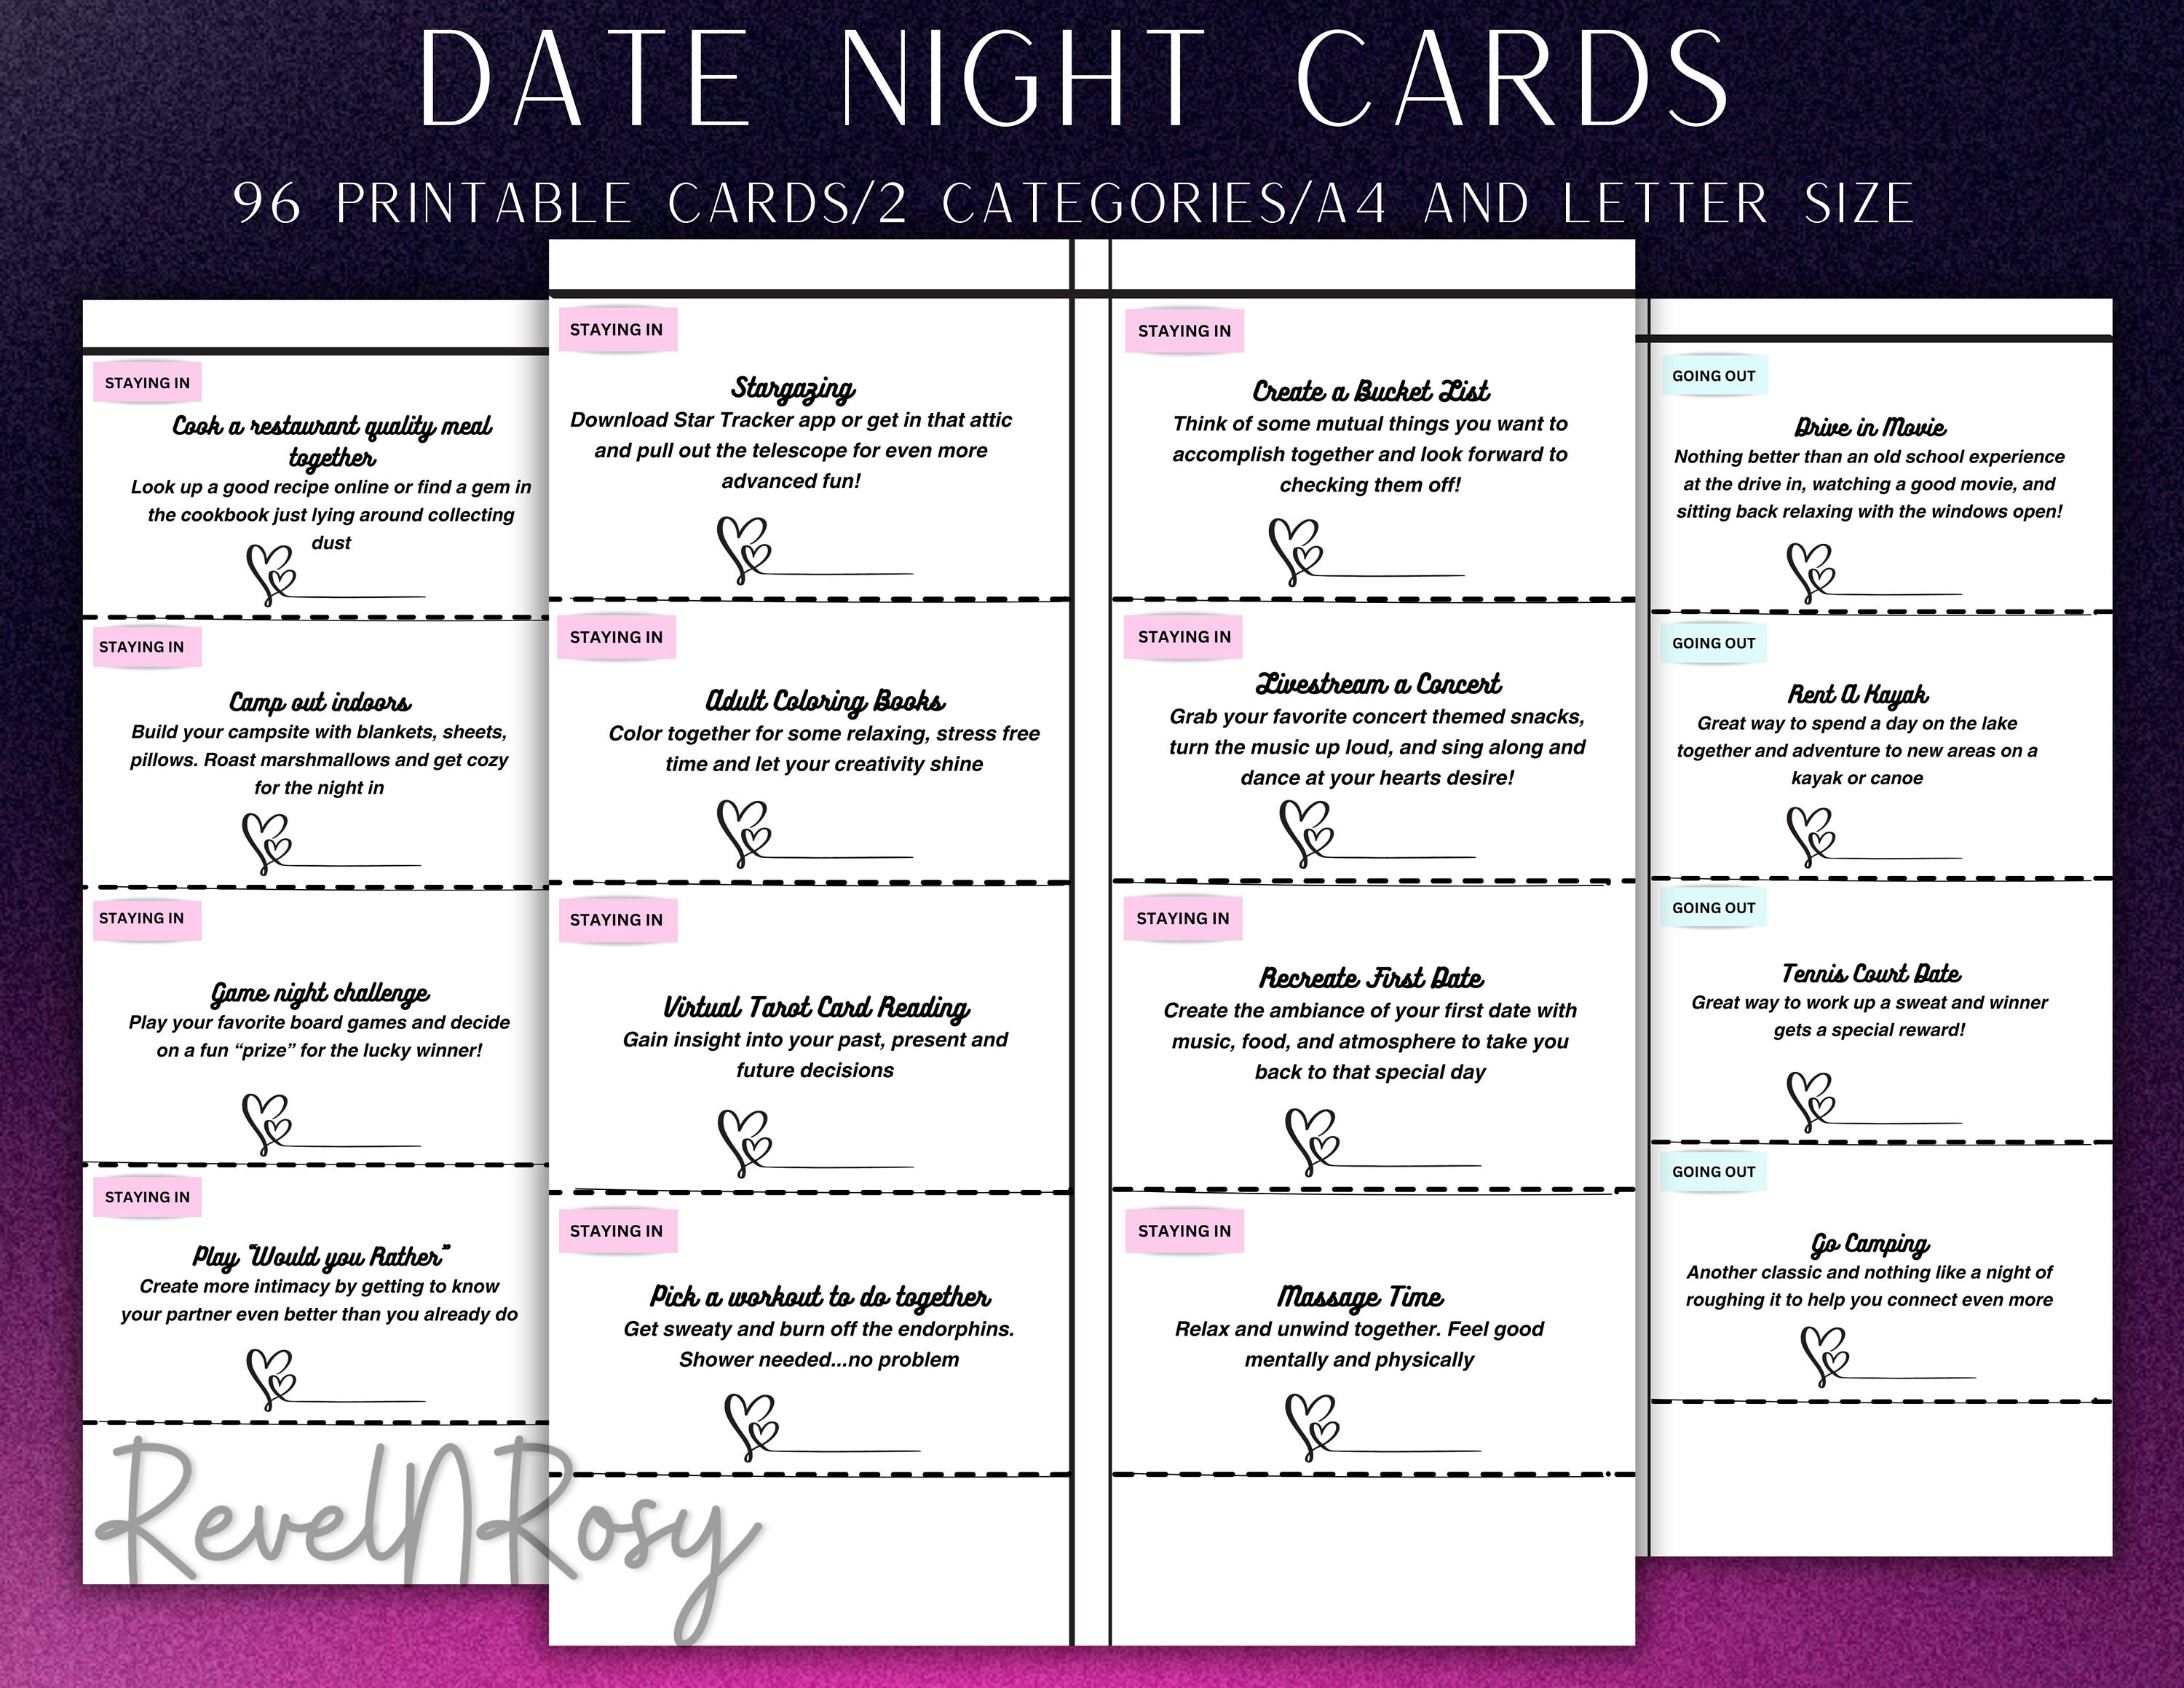 DATE NIGHT CARDS
96 PRINTABLE CARDS/2 CATEGORIES/A4 AND LETTER SIZE
STAYING IN
Cook a restaurant quality meal
together
Look up a good recipe online or find a gem in
the cookbook just lying around collecting
dust
STAYING IN
Camp out indoors
Build your campsite with blankets, sheets,
pillows. Roast marshmallows and get cozy
for the night in
STAYING IN
Game night challenge
Play your favorite board games and decide
on a fun “prize” for the lucky winner!
STAYING IN
Play “Would you Rather”
Create more intimacy by getting to know
your partner even better than you already do
STAYING IN
Stargazing
Download Star Tracker app or get in that attic
and pull out the telescope for even more
advanced fun!
STAYING IN
Adult Coloring Books
Color together for some relaxing, stress free
time and let your creativity shine
STAYING IN
Virtual Tarot Card Reading
Gain insight into your past, present and
future decisions
STAYING IN
Pick a workout to do together
Get sweaty and burn off the endorphins.
Shower needed...no problem
STAYING IN
Create a Bucket List
Think of some mutual things you want to
accomplish together and look forward to
checking them off!
STAYING IN
Livestream a Concert
Grab your favorite concert themed snacks,
turn the music up loud, and sing along and
dance at your hearts desire!
STAYING IN
Recreate First Date
Create the ambiance of your first date with
music, food, and atmosphere to take you
back to that special day
STAYING IN
Massage Time
Relax and unwind together. Feel good
mentally and physically
GOING OUT
Drive in Movie
Nothing better than an old school experience
at the drive in, watching a good movie, and
sitting back relaxing with the windows open!
GOING OUT
Rent A Kayak
Great way to spend a day on the lake
together and adventure to new areas on a
kayak or canoe
GOING OUT
Tennis Court Date
Great way to work up a sweat and winner
gets a special reward!
GOING OUT
Go Camping
Another classic and nothing like a night of
roughing it to help you connect even more
RevelNRosy